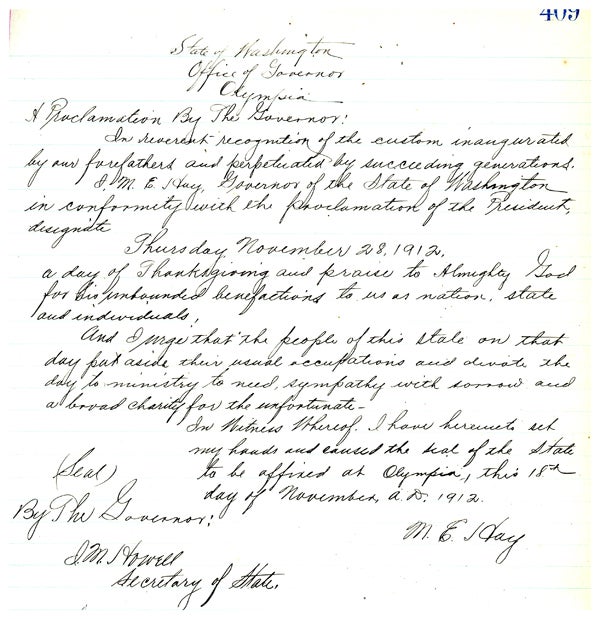 409
State of Washington
Office of Governor
Olympia
A Proclamation By The Governor:
In reverent recognition of the custom inaugurated
by our forefathers and perpetuated by succeeding generations.
I, M. E. Hay, Governor of the State of Washington
in conformity with the proclamation of the President,
designate
Thursday November 28, 1912,
a day of Thanksgiving and praise to Almighty God
for his unbounded benefactions to us as nation, state
and individuals,
And I urge that the people of this state on that
day put aside their usual occupations and devote the
day to ministry to need, sympathy with sorrow and
a broad charity for the unfortunate-
In Witness Whereof. I have hereunto set
my hands and caused the seal of the State
(Seal) to be affixed at Olympia, this 18th
day of November, A.D. 1912.
By The Governor:
M. E. Hay
I. M. Howell
Secretary of State.